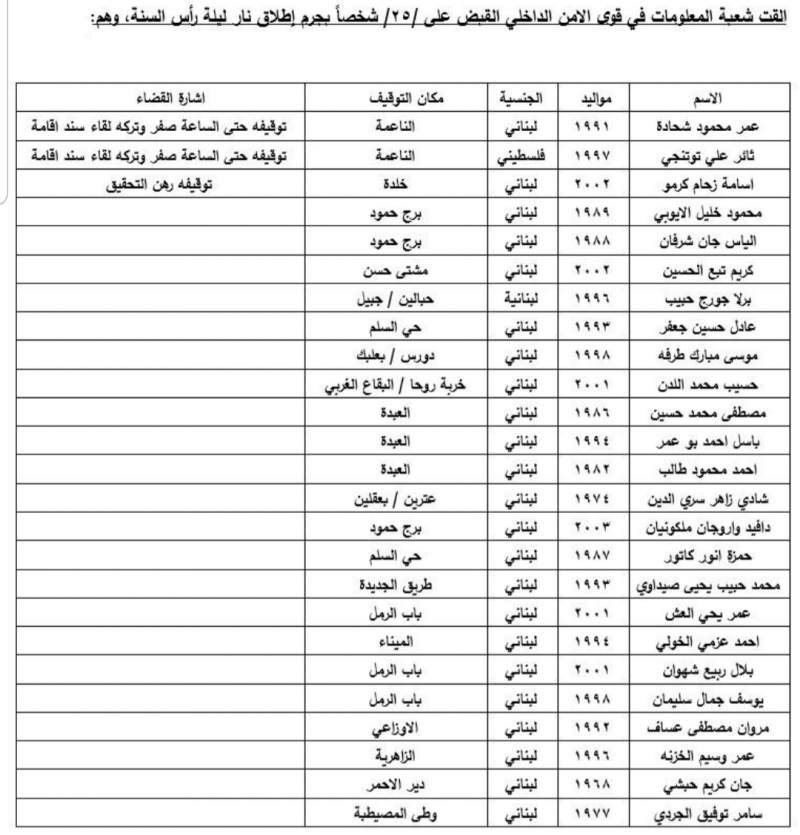 القت شعبة المعلومات في قوى الامن الداخلي القبض على /٢٥/ شخصاً بجرم إطلاق نار ليلة رأس السنة، وهم:
الاسم مواليد الجنسية مكان التوقيف اشارة القضاء
عمر محمود شحادة ١٩٩١ لبناني الناعمة توقيفه حتى الساعة صفر وتركه لقاء سند اقامة
ثائر علي توتنجي ١٩٩٧ فلسطيني الناعمة توقيفه حتى الساعة صفر وتركه لقاء سند اقامة
اسامة زحام كرمو ٢٠٠٢ لبناني خلدة توقيفه رهن التحقيق
محمود خليل الايوبي ١٩٨٩ لبناني برج حمود
الياس جان شرفان ١٩٨٨ لبناني برج حمود
كريم تبع الحسين ٢٠٠٢ لبناني مشتى حسن
برلا جورج حبيب ١٩٩٦ لبنانية حبالين / جبيل
عادل حسين جعفر ١٩٩٣ لبناني حي السلم
موسى مبارك طرفه ١٩٩٨ لبناني دورس / بعلبك
حسيب محمد اللدن ٢٠٠١ لبناني خربة روحا / البقاع الغربي
مصطفى محمد حسين ١٩٨٦ لبناني العبدة
باسل احمد بو عمر ١٩٩٤ لبناني العبدة
احمد محمود طالب ١٩٨٢ لبناني العبدة
شادي زاهر سري الدين ١٩٧٤ لبناني عترين / بعقلين
دافيد واروجان ملكونيان ٢٠٠٣ لبناني برج حمود
حمزة انور كاتور ١٩٨٧ لبناني حي السلم
محمد حبيب يحيى صيداوي ١٩٩٣ لبناني طريق الجديدة
عمر يحي العش ٢٠٠١ لبناني باب الرمل
احمد عزمي الخولي ١٩٩٤ لبناني الميناء
بلال ربيع شهوان ٢٠٠١ لبناني باب الرمل
يوسف جمال سليمان ١٩٩٨ لبناني باب الرمل
مروان مصطفى عساف ١٩٩٢ لبناني الاوزاعي
عمر وسيم الخزنه ١٩٩٦ لبناني الزاهرية
جان كريم حبشي ١٩٦٨ لبناني دير الاحمر
سامر توفيق الجردي ١٩٧٧ لبناني وطى المصيطبة